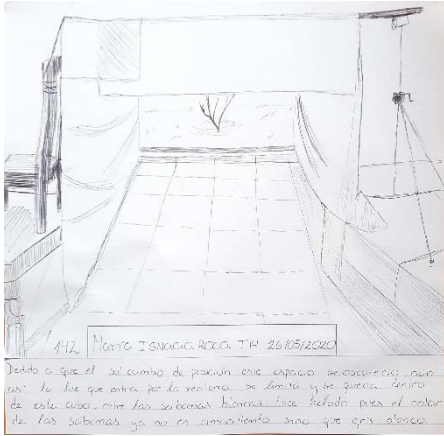 142 MARTA IGNACIA ROCA T14 26/05/2020
Debido a que el sol cambio de posición este espacio se oscureció, aun
así la luz que entra por la ventana se limita y se queda dentro
de este cubo, entre las sabanas blancas luce helado pues el color
de las sabanas ya no es amarillento sino que gris blanco